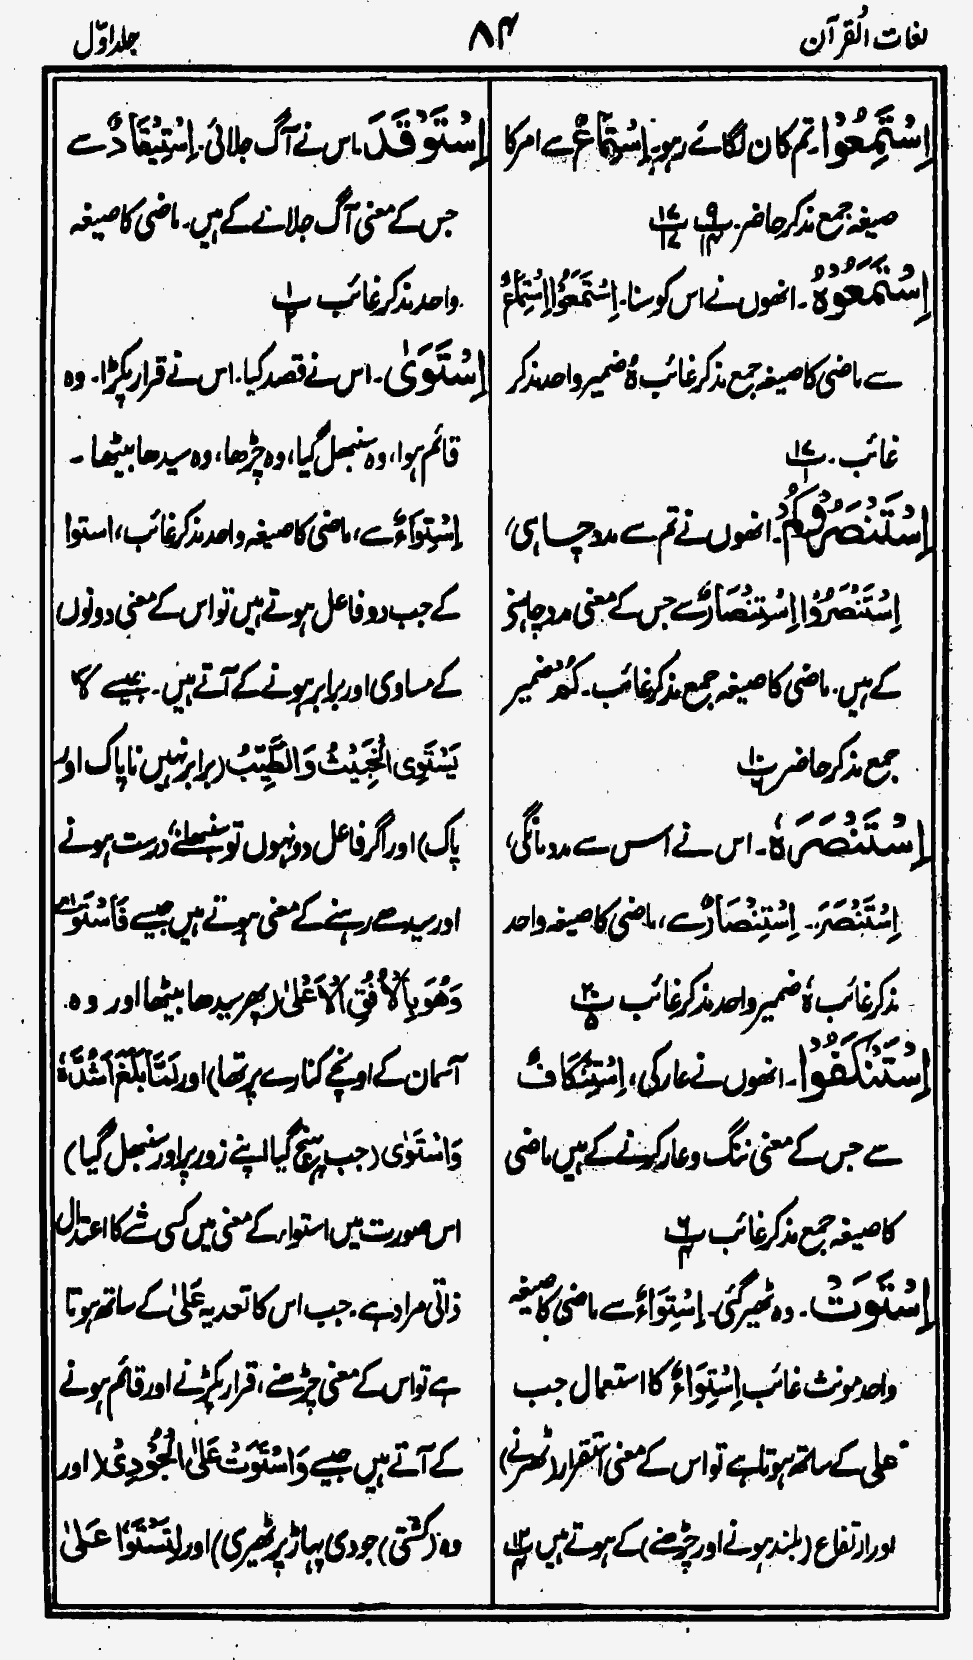 لغات القرآن ۸۴ جلد اوّل
اِسْتَمِعُوْا۔ تم کان لگائے رہو۔ اِسْتِمَاعٌ سے امر کا
صیغہ جمع مذکر حاضر۔
اِسْتَمَعُوْهُ۔ انھوں نے اس کو سنا۔ اِسْتَمَعُوْا اِسْتِمَاعٌ
سے ماضی کا صیغہ جمع مذکر غائب ہٗ ضمیر واحد مذکر
غائب۔ پ ۱۷/۱
اِسْتَنْصَرُوْكُمْ۔ انھوں نے تم سے مدد چاہی،
اِسْتَنْصَرُوْا اِسْتِنْصَارٌ سے جس کے معنی مدد چاہنے
کے ہیں۔ ماضی کا صیغہ جمع مذکر غائب۔ کُمْ ضمیر
جمع مذکر حاضر پ ۱۰/۶
اِسْتَنْصَرَهٗ۔ اس نے اس سے مدد مانگی،
اِسْتَنْصَرَ۔ اِسْتِنْصَارٌ سے، ماضی کا صیغہ واحد
مذکر غائب ہٗ ضمیر واحد مذکر غائب پ ۲۰/۵
اِسْتَنْكَفُوْا۔ انھوں نے عار کی، اِسْتِنْكَافٌ
سے جس کے معنی ننگ و عار کرنے کے ہیں ماضی
کا صیغہ جمع مذکر غائب پ ۶/۴
اِسْتَوَتْ۔ وہ ٹھیر گئی۔ اِسْتِوَاءٌ سے ماضی کا صیغہ
واحد مونث غائب اِسْتِوَاءٌ کا استعمال جب
علی کے ساتھ ہوتا ہے تو اس کے معنی استقرار (ٹھہرنے)
اور ارتفاع (بلند ہونے اور چڑھنے) کے ہوتے ہیں پ ۱۲/۴
اِسْتَوْقَدَ۔ اس نے آگ جلائی۔ اِسْتِيْقَادٌ سے
جس کے معنی آگ جلانے کے ہیں۔ ماضی کا صیغہ
واحد مذکر غائب پ ۱/۲
اِسْتَوٰى۔ اس نے قصد کیا۔ اس نے قرار پکڑا۔ وہ
قائم ہوا، وہ سنبھل گیا، وہ چڑھا، وہ سیدھا بیٹھا۔
اِسْتِوَاءٌ سے، ماضی کا صیغہ واحد مذکر غائب، استوا
کے جب دو فاعل ہوتے ہیں تو اس کے معنی دونوں
کے مساوی اور برابر ہونے کے آتے ہیں۔ جیسے لَا
يَسْتَوِى الْخَبِيْثُ وَالطَّيِّبُ (برابر نہیں ناپاک اور
پاک) اور اگر فاعل دو نہوں تو سنبھلنے، درست ہونے
اور سیدھے رہنے کے معنی ہوتے ہیں جیسے فَاسْتَوٰى
وَهُوَ بِالْاُفُقِ الْاَعْلٰى (پھر سیدھا بیٹھا اور وہ
آسمان کے اونچے کنارے پر تھا) اور لَمَّا بَلَغَ اَشُدَّهٗ
وَاسْتَوٰى (جب پہنچ گیا اپنے زور پر اور سنبھل گیا)
اس صورت میں استواء کے معنی میں کسی شے کا اعتدال
ذاتی مراد ہے۔ جب اس کا تعدیہ عَلٰى کے ساتھ ہوتا
ہے تو اس کے معنی چڑھنے، قرار پکڑنے اور قائم ہونے
کے آتے ہیں جیسے وَاسْتَوَتْ عَلَى الْجُوْدِىِّ (اور
وہ (کشتی) جودی پہاڑ پر ٹھیری) اور لِتَسْتَوٗا عَلٰى